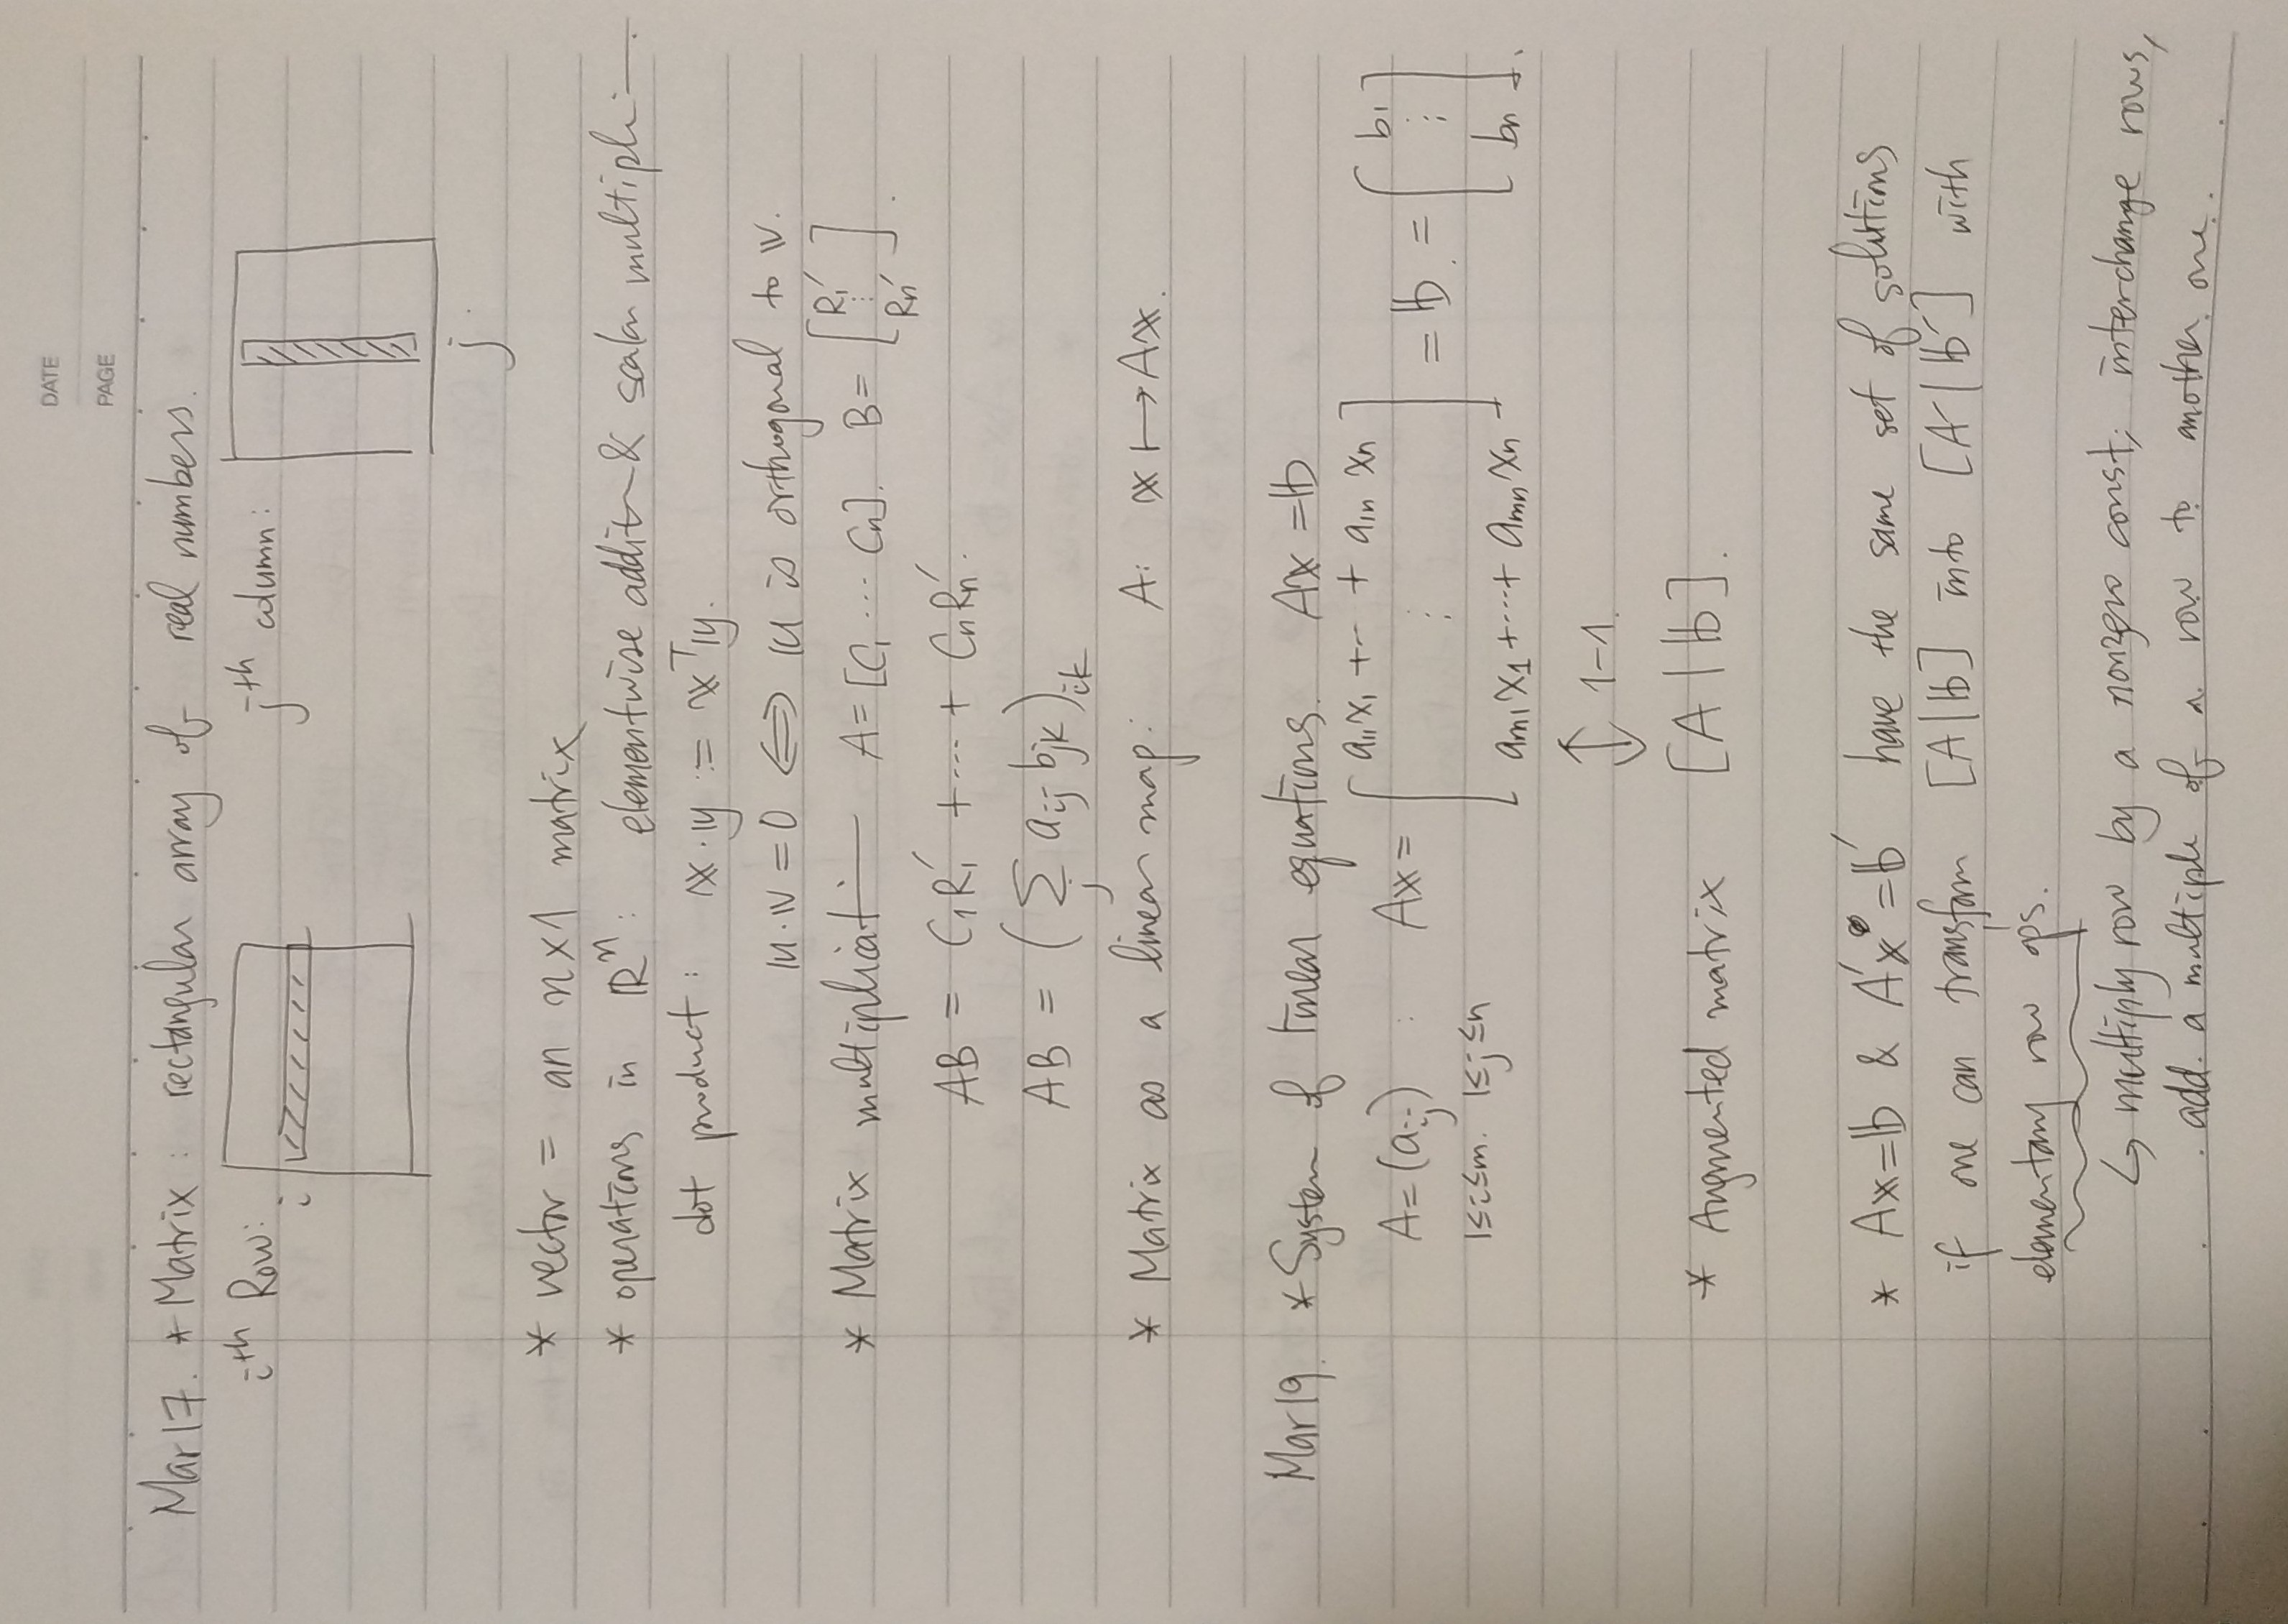 DATE
PAGE
Mar 17. * Matrix : rectangular array of real numbers.
i^th Row: i j^th column: j
* vector = an n×1 matrix
* operations in ℝ^n : elementwise addit & scalar multipli
dot product : 𝕩·𝕪 := 𝕩^T𝕪.
𝕦·𝕧 = 0 ⟺ 𝕦 is orthogonal to 𝕧.
* Matrix multiplicat A = [C_1 ··· C_n]. B = [R_1' ⋮ R_n'].
AB = C_1R_1' + ··· + C_nR_n'.
AB = (∑_j a_ij b_jk)_ik
* Matrix as a linear map: A: 𝕩 ↦ A𝕩.
Mar 19. * System of linear equations. A𝕩 = 𝕓
A = (a_ij) : A𝕩 = [a_11x_1 + ··· + a_1n x_n ⋮ a_m1x_1 + ··· + a_mn x_n] = 𝕓. = [b_1 ⋮ b_n].
1≤i≤m. 1≤j≤n
↕ 1-1.
* Augmented matrix [A | 𝕓].
* A𝕩=𝕓 & A'𝕩=𝕓' have the same set of solutions
if one can transform [A|𝕓] into [A'|𝕓'] with
elementary row ops.
↳ multiply row by a nonzero const; interchange rows,
add a multiple of a row to another one.